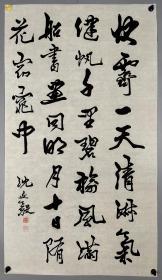 快霽一天清淑氣
健帆千里碧榆風滿
船書畫同明月十日隋
花窈窕中
沈延毅